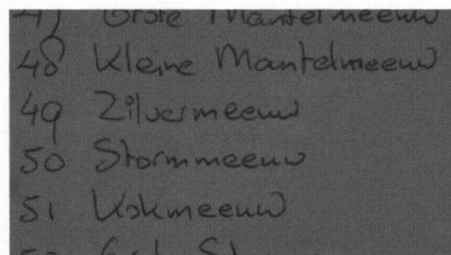 47 Grote Mantelmeeuw
48 Kleine Mantelmeeuw
49 Zilvermeeuw
50 Stormmeeuw
51 Kokmeeuw